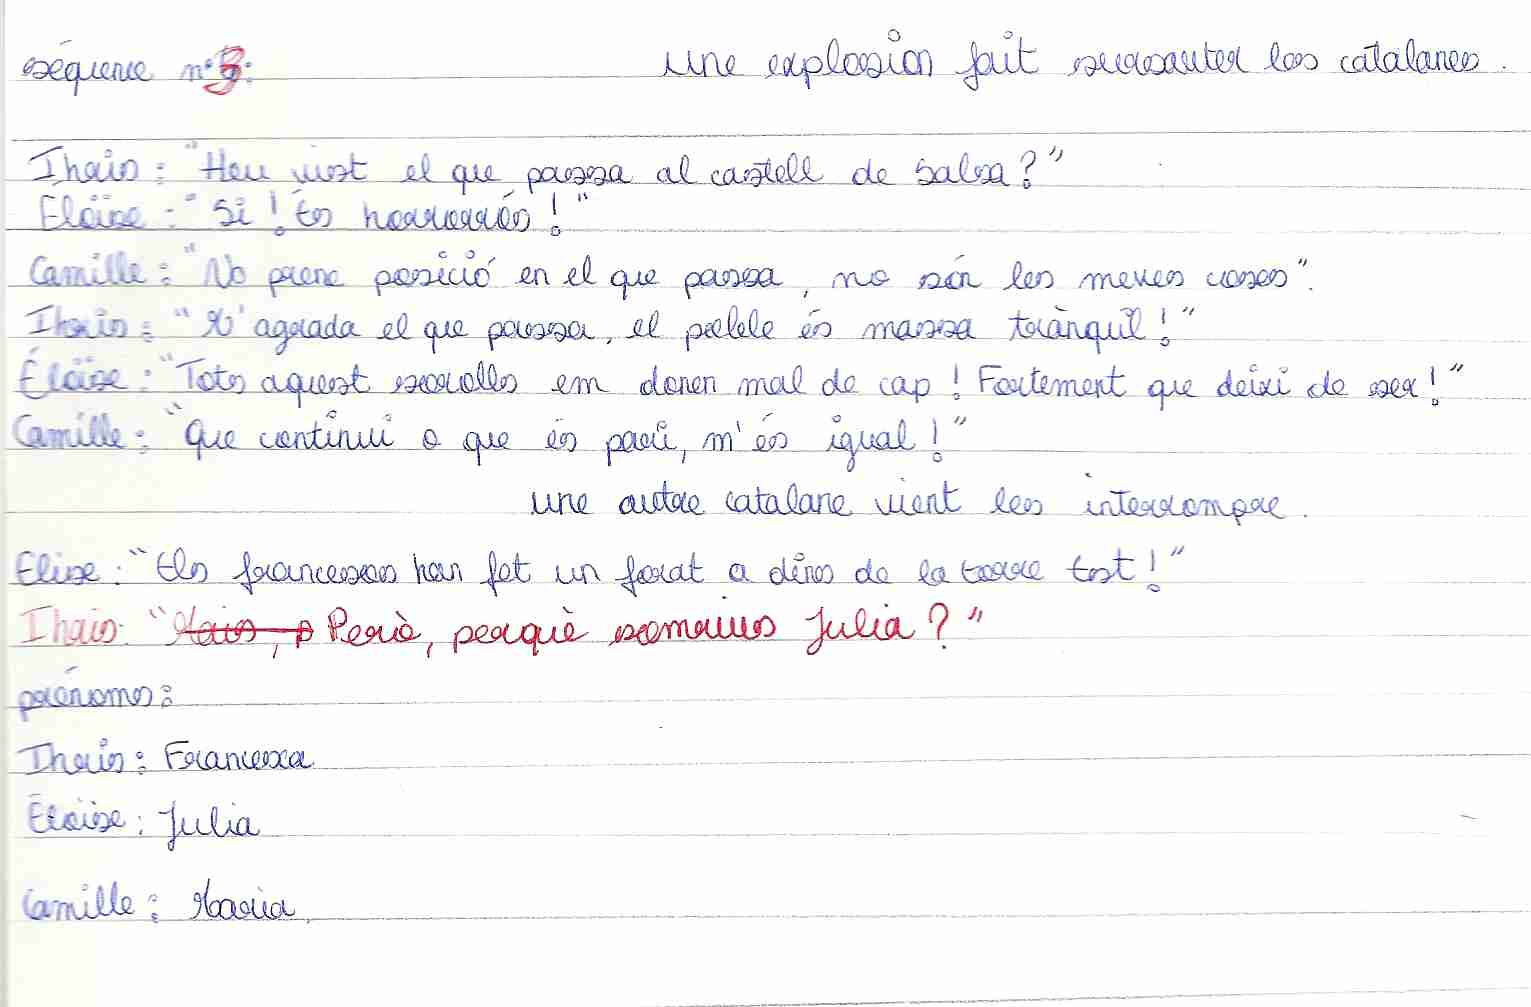 séquence n°3: une explosion fait sursauter les catalanes.
Thaïs : "Heu vist el que passa al castell de Salsa?"
Éloïse : "Si! És horrorós!"
Camille : "No prenc posició en el que passa, no són les meves coses".
Thaïs : "M'agrada el que passa, el poble és massa tranquil!"
Éloïse : "Tots aquest scrolls em donen mal de cap! Fortement que deixi de ser!"
Camille : "Que continui o que es pari, m'és igual!"
une autre catalane vient les interrompre.
Elise : "Els francesos han fet un forat a dins de la torre est!"
Thaïs : "Però, perquè somrius Julia?"
prénoms :
Thaïs : Francesca
Éloïse : Julia
Camille : Maria.